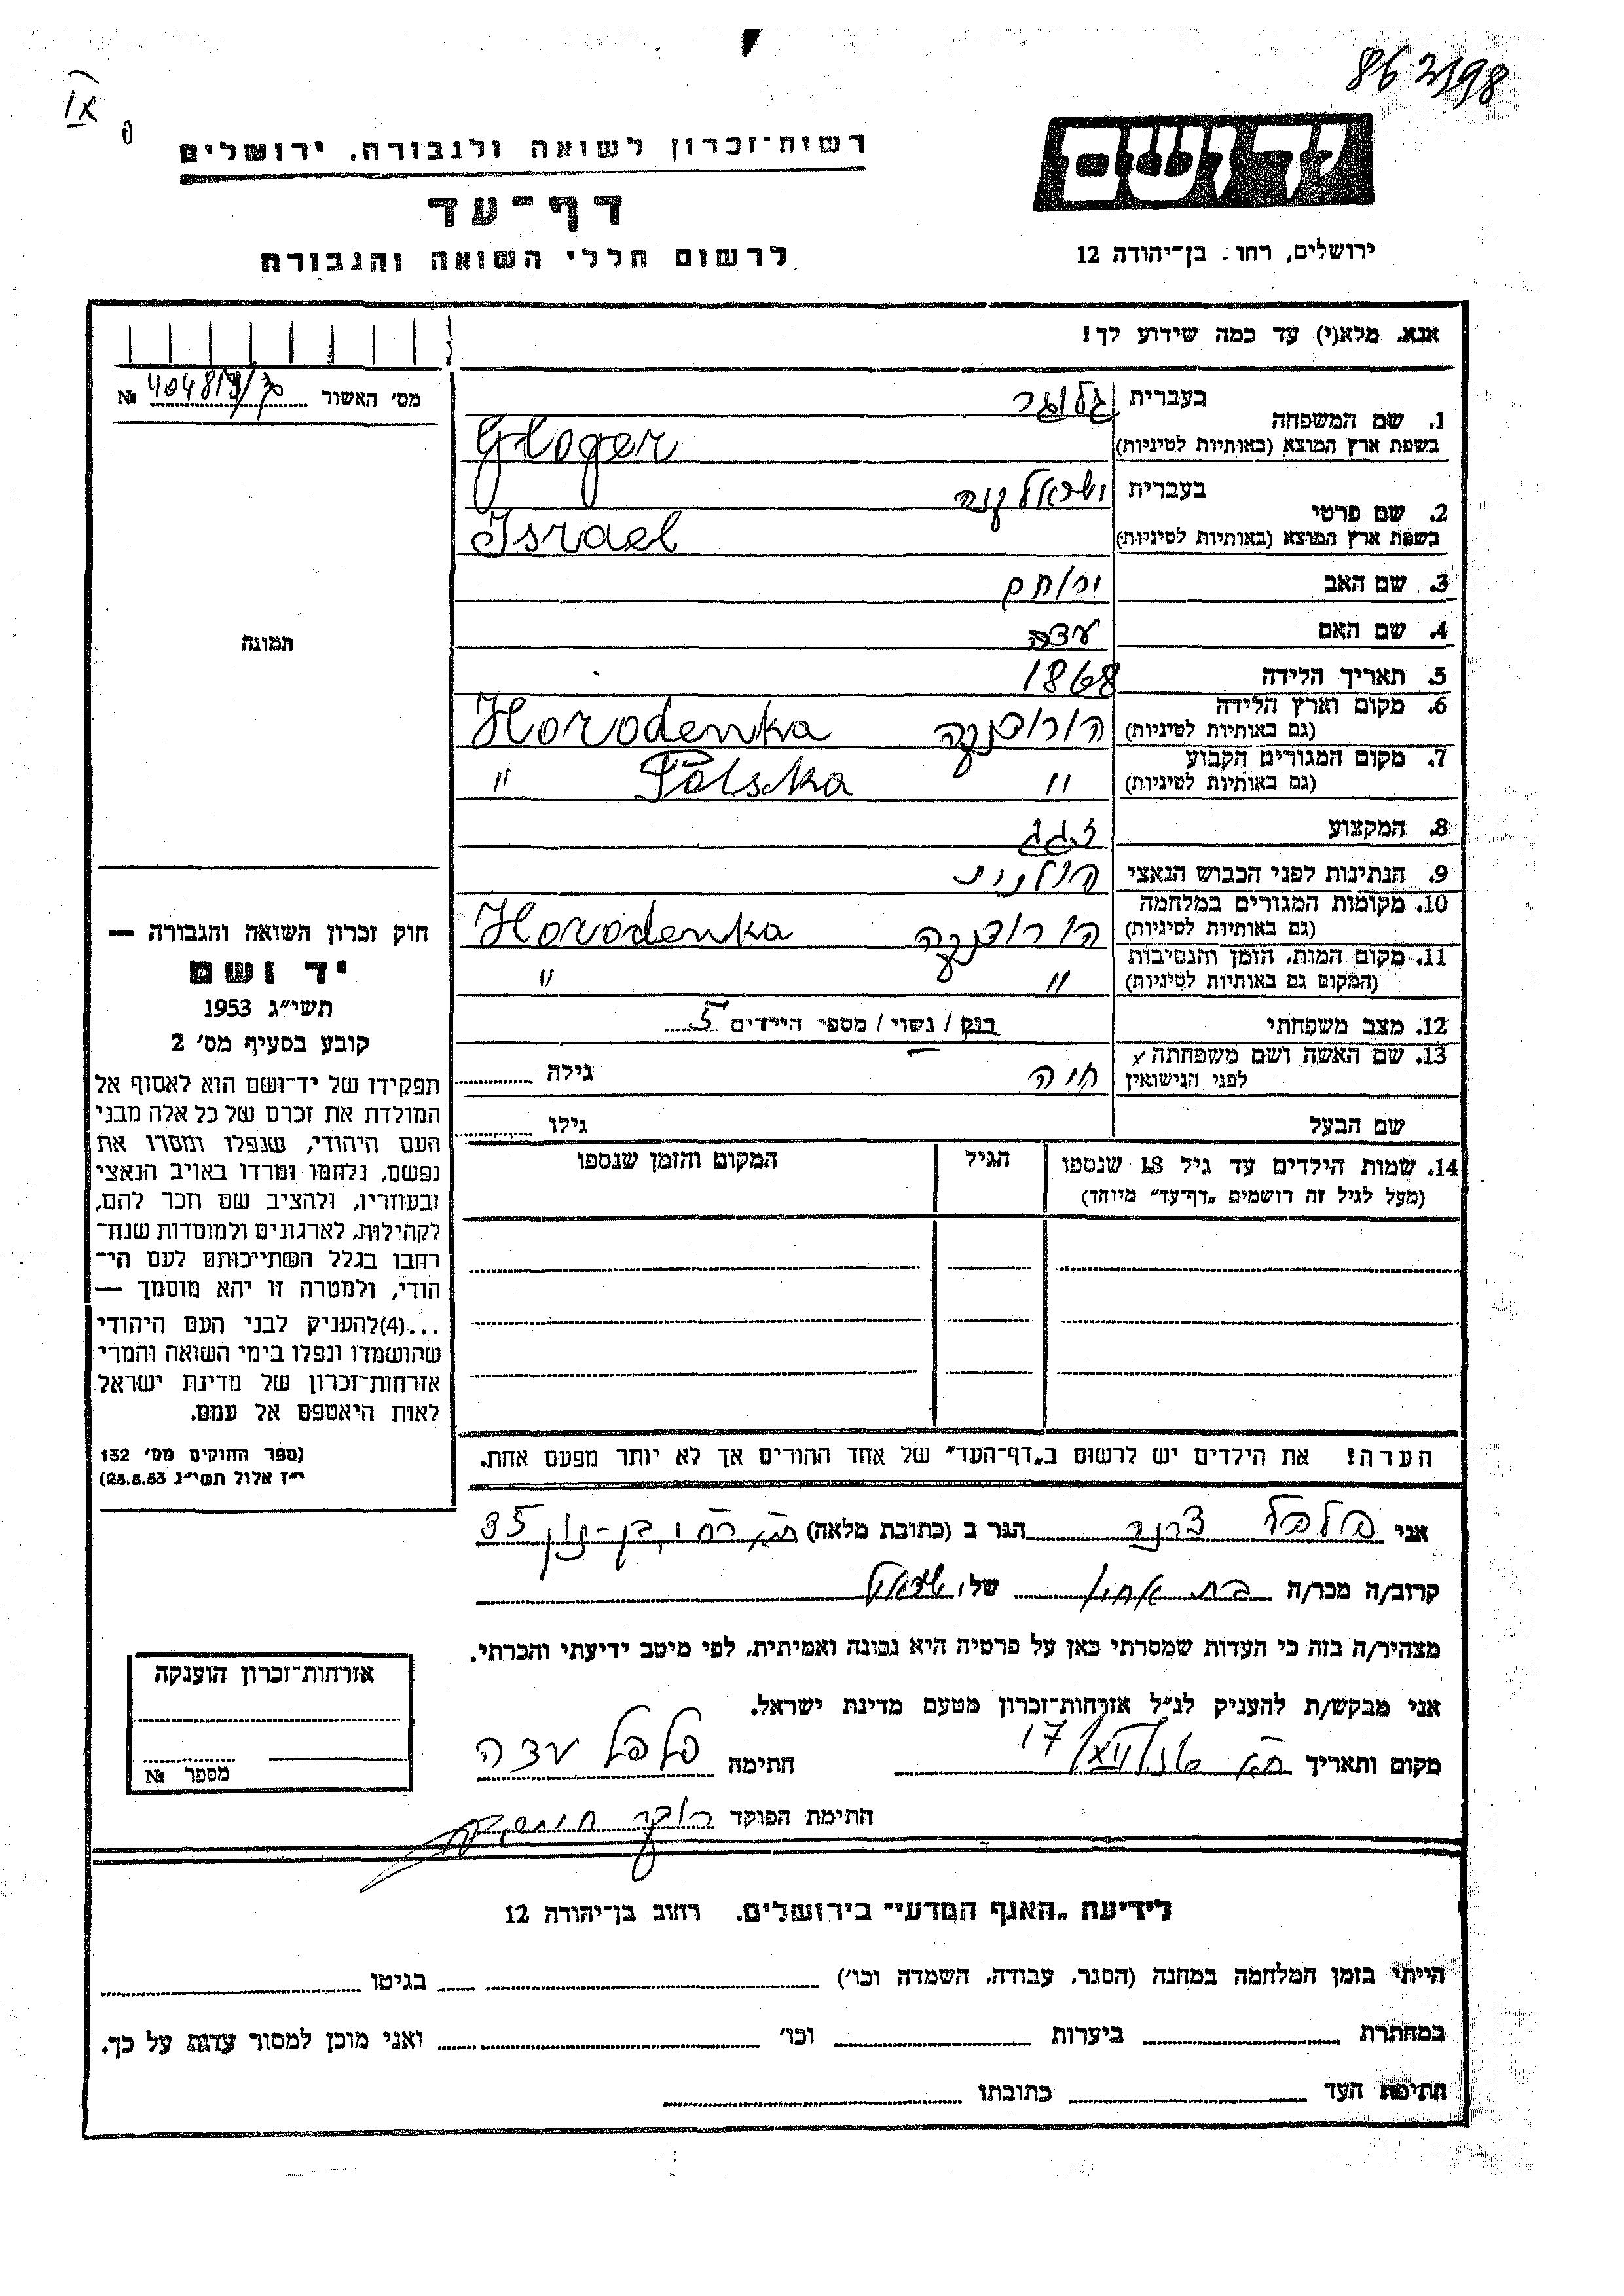 862198
יד ושם
ירושלים, רחו. בן־יהודה 12
רשות־זכרון לשואה ולגבורה, ירושלים
דף־עד
לרשום חללי השואה והגבורה
אנא, מלא(י) עד כמה שידוע לך!
מס׳ האשור №
1. שם המשפחה
בעברית גלוגר
בשפת ארץ המוצא (באותיות לטיניות) Gloger
2. שם פרטי
בעברית ישראל יונה
בשפת ארץ המוצא (באותיות לטיניות) Israel
3. שם האב ירוחם
4. שם האם עדה
5. תאריך הלידה 1868
6. מקום וארץ הלידה
(גם באותיות לטיניות) הורודנקה Horodenka
7. מקום המגורים הקבוע
(גם באותיות לטיניות) " Polska "
8. המקצוע זגג
9. הנתינות לפני הכבוש הנאצי פולנית
10. מקומות המגורים במלחמה
(גם באותיות לטיניות) הורודנקה Horodenka
11. מקום המות, הזמן והנסיבות
(המקום גם באותיות לטיניות) " "
12. מצב משפחתי רוק / נשוי / מספר הילדים 5
13. שם האשה ושם משפחתה
לפני הנישואין חיה גילה
שם הבעל גילו
14. שמות הילדים עד גיל 18 שנספו הגיל המקום והזמן שנספו
(מעל לגיל זה רושמים „דף־עד״ מיוחד)
הערה! את הילדים יש לרשום ב„דף־העד״ של אחד ההורים אך לא יותר מפעם אחת.
תמונה
חוק זכרון השואה והגבורה —
יד ושם
תשי״ג 1953
קובע בסעיף מס׳ 2
תפקידו של יד־ושם הוא לאסוף אל
המולדת את זכרם של כל אלה מבני
העם היהודי, שנפלו ומסרו את
נפשם, נלחמו ומרדו באויב הנאצי
ובעוזריו, ולהציב שם וזכר להם,
לקהילות, לארגונים ולמוסדות שנח־
רבו בגלל השתייכותם לעם הי־
הודי, ולמטרה זו יהא מוסמך —
...(4)להעניק לבני העם היהודי
שהושמדו ונפלו בימי השואה והמרי
אזרחות־זכרון של מדינת ישראל
לאות היאספם אל עמם.
(ספר החוקים מס׳ 132
י״ז אלול תשי״ג 28.8.53)
אני פלפל עדה הגר ב (כתובת מלאה) ת״א רח׳ בן־נון 35
קרוב/ה מכר/ה בת אחיו של ישראל
מצהיר/ה בזה כי העדות שמסרתי כאן על פרטיה היא נכונה ואמיתית, לפי מיטב ידיעתי והכרתי.
אני מבקש/ת להעניק לנ״ל אזרחות־זכרון מטעם מדינת ישראל.
מקום ותאריך ת״א חתימה פלפל עדה
חתימת הפוקד
אזרחות־זכרון הוענקה
מספר №
לידיעת „האגף המדעי״ בירושלים, רחוב בן־יהודה 12
הייתי בזמן המלחמה במחנה (הסגר, עבודה, השמדה וכו׳) בגיטו
במחתרת ביערות וכו׳ ואני מוכן למסור עדות על כך.
חתימת העד כתובתו